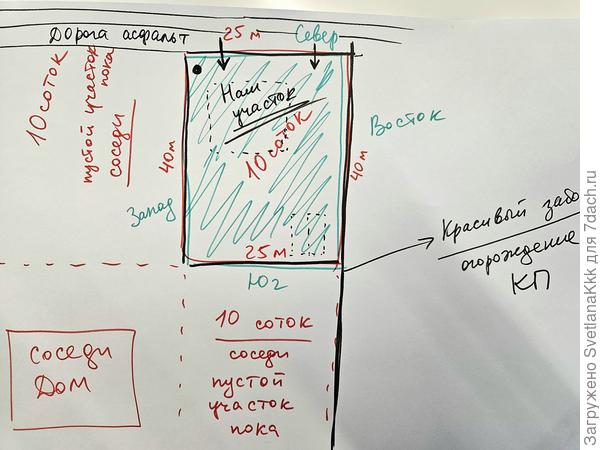 Дорога асфальт
25 м
Север
10 соток
пустой участок
пока
соседи
40 м
Наш
участок
10 соток
40 м
Восток
Запад
25 м
Юг
Красивый забо
огорождение
КП
10 соток
соседи
пустой
участок
пока
соседи
Дом
Загружено SvetlanaKkk для 7dach.ru